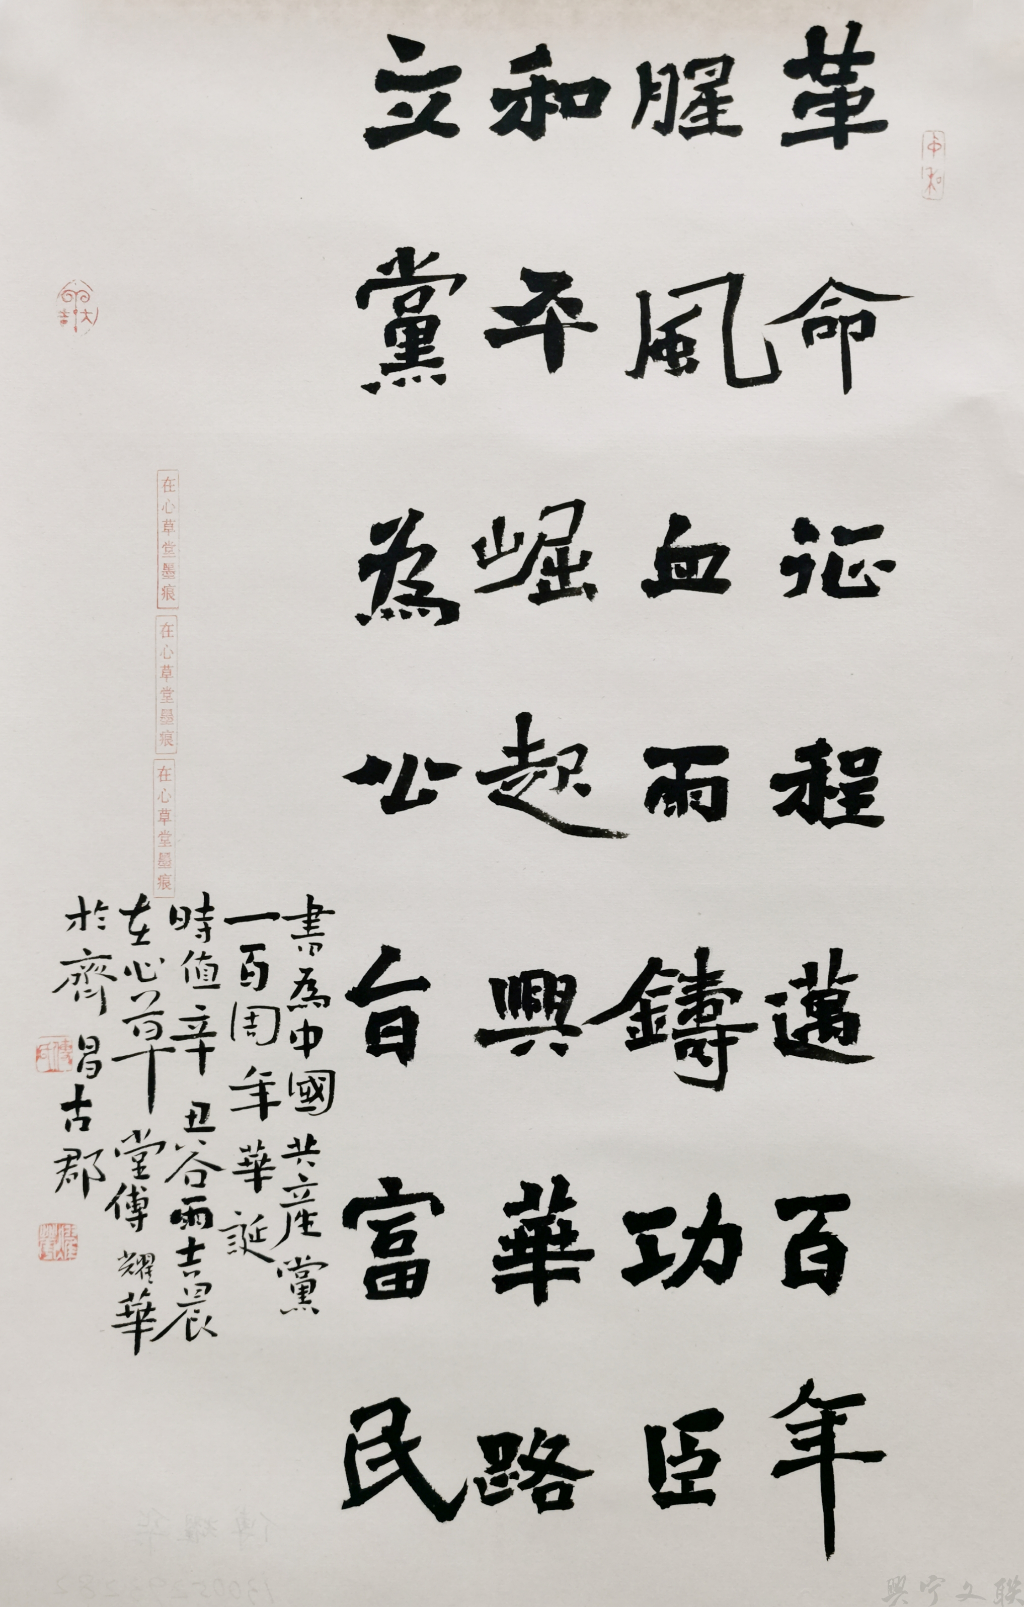 革命征程邁百年
腥風血雨鑄功臣
和平崛起興華路
立黨為公旨富民
書為中國共產黨
一百周年華誕
時值辛丑谷雨吉晨
在心草堂傅耀華
於齊昌古郡
在心草堂墨痕
在心草堂墨痕
在心草堂墨痕
中和
興宁文联